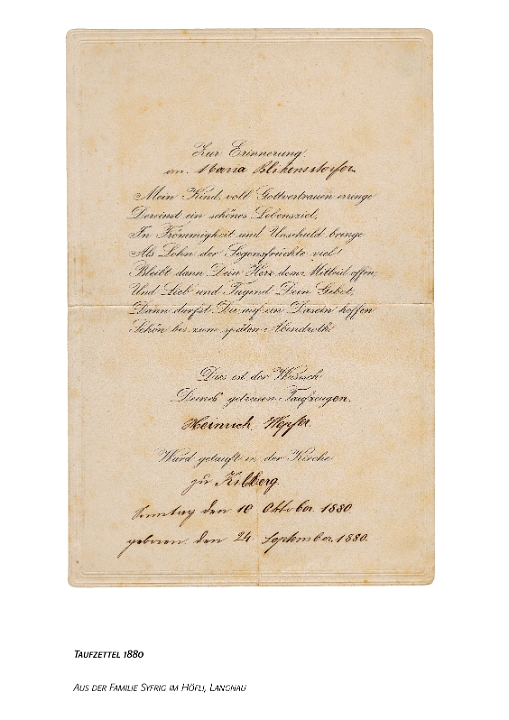 Zur Erinnerung
an Maria Blikenstorfer
Mein Kind, voll Gottvertrauen erringe
Dereinst ein schönes Lebensziel,
In Frömmigkeit und Unschuld bringe
Als Lohn der Segensfrüchte viel!
Bleibt dann Dein Herz dem Mitleid offen
Und Lieb' und Tugend Dein Gebot,
Dann darfst Du auf ein Dasein hoffen
Schön bis zum späten Abendroth!
Dies ist der Wunsch
Deines getreuen Taufzeugen.
Heinrich
Ward getauft in der Kirche
zu Kilberg
Sonntag den 10 Oktober 1880
geboren den 24 September 1880.
Taufzettel 1880
Aus der Familie Syfrig im Höfli, Langnau